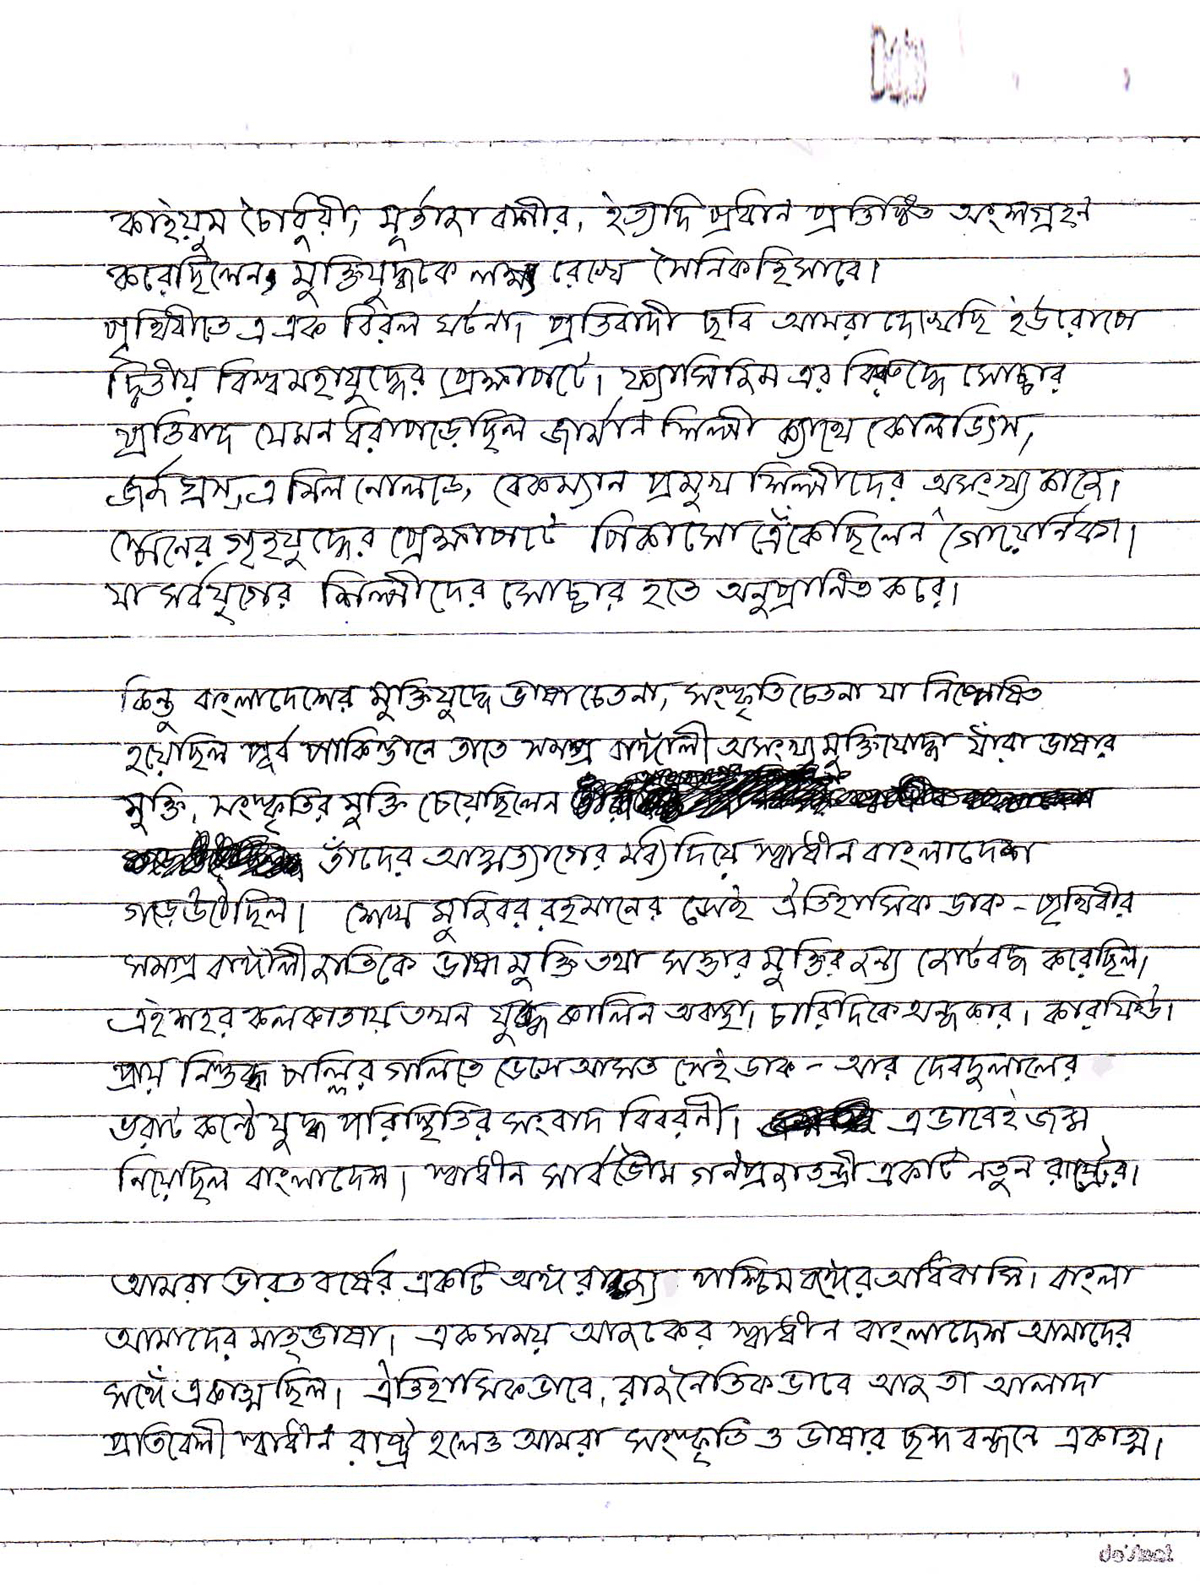 কাইয়ুম চৌধুরী, মূর্তাজা বশীর, ইত্যাদি প্রধান প্রতিষ্ঠিত অংশগ্রহন
করেছিলেন, মুক্তিযুদ্ধকে লক্ষ্য রেখে সৈনিক হিসাবে।
পৃথিবীতে এ এক বিরল ঘটনা। প্রতিবাদী ছবি আমরা দেখেছি ইউরোপে
দ্বিতীয় বিশ্বমহাযুদ্ধের প্রেক্ষাপটে। ফ্যাসিজিম এর বিরুদ্ধে সোচ্চার
প্রতিবাদ যেমন ধরা পড়েছিল জার্মান শিল্পী ক্যাথে কোলভিৎস,
জর্জ গ্রস, এমিল নোলডে, বেকম্যান প্রমুখ শিল্পীদের অসংখ্য কাজে।
স্পেনের গৃহযুদ্ধের প্রেক্ষাপটে পিকাসো এঁকেছিলেন গোয়ের্নিকা।
যা সর্বযুগের শিল্পীদের সোচ্চার হতে অনুপ্রানিত করে।
কিন্তু বাংলাদেশের মুক্তিযুদ্ধে ভাষা চেতনা, সংস্কৃতি চেতনা যা নিষ্পেষিত
হয়েছিল পূর্ব পাকিস্তানে তাতে সমগ্র বাঙ্গালী অসংখ্য মুক্তিযোদ্ধা যাঁরা ভাষার
মুক্তি, সংস্কৃতির মুক্তি চেয়েছিলেন
তাঁদের আত্মত্যাগের মধ্যি দিয়ে স্বাধীন বাংলাদেশ
গড়ে উঠেছিল। শেখ মুজিবর রহমানের সেই ঐতিহাসিক ডাক – পৃথিবীর
সমগ্র বাঙ্গালী জাতিকে ভাষা মুক্তি তথা সত্তার মুক্তির জন্য জোটবদ্ধ করেছিল।
এই শহর কলকাতায় তখন যুদ্ধ কালিন অবস্থা। চারিদিকে অন্ধকার। কারফিউ।
প্রায় নিস্তব্ধ পল্লির গলিতে ভেসে আসত সেই ডাক – আর দেবদুলালের
ভরাট কন্ঠে যুদ্ধ পরিস্থিতির সংবাদ বিবরনী। এভাবেই জন্ম
নিয়েছিল বাংলাদেশ। স্বাধীন সার্বভৌম গনপ্রজাতন্ত্রী একটি নতুন রাষ্ট্রের।
আমরা ভারতবর্ষের একটি অঙ্গ রাজ্য পশ্চিমবঙ্গের অধিবাসি। বাংলা
আমাদের মাতৃভাষা। একসময় আজকের স্বাধীন বাংলাদেশ আমাদের
সঙ্গে একাত্ম ছিল। ঐতিহাসিকভাবে, রাজনৈতিকভাবে আজ তা আলাদা
প্রতিবেশী স্বাধীন রাষ্ট্র হলেও আমরা সংস্কৃতি ও ভাষার ছন্দ বন্ধনে একাত্ম।